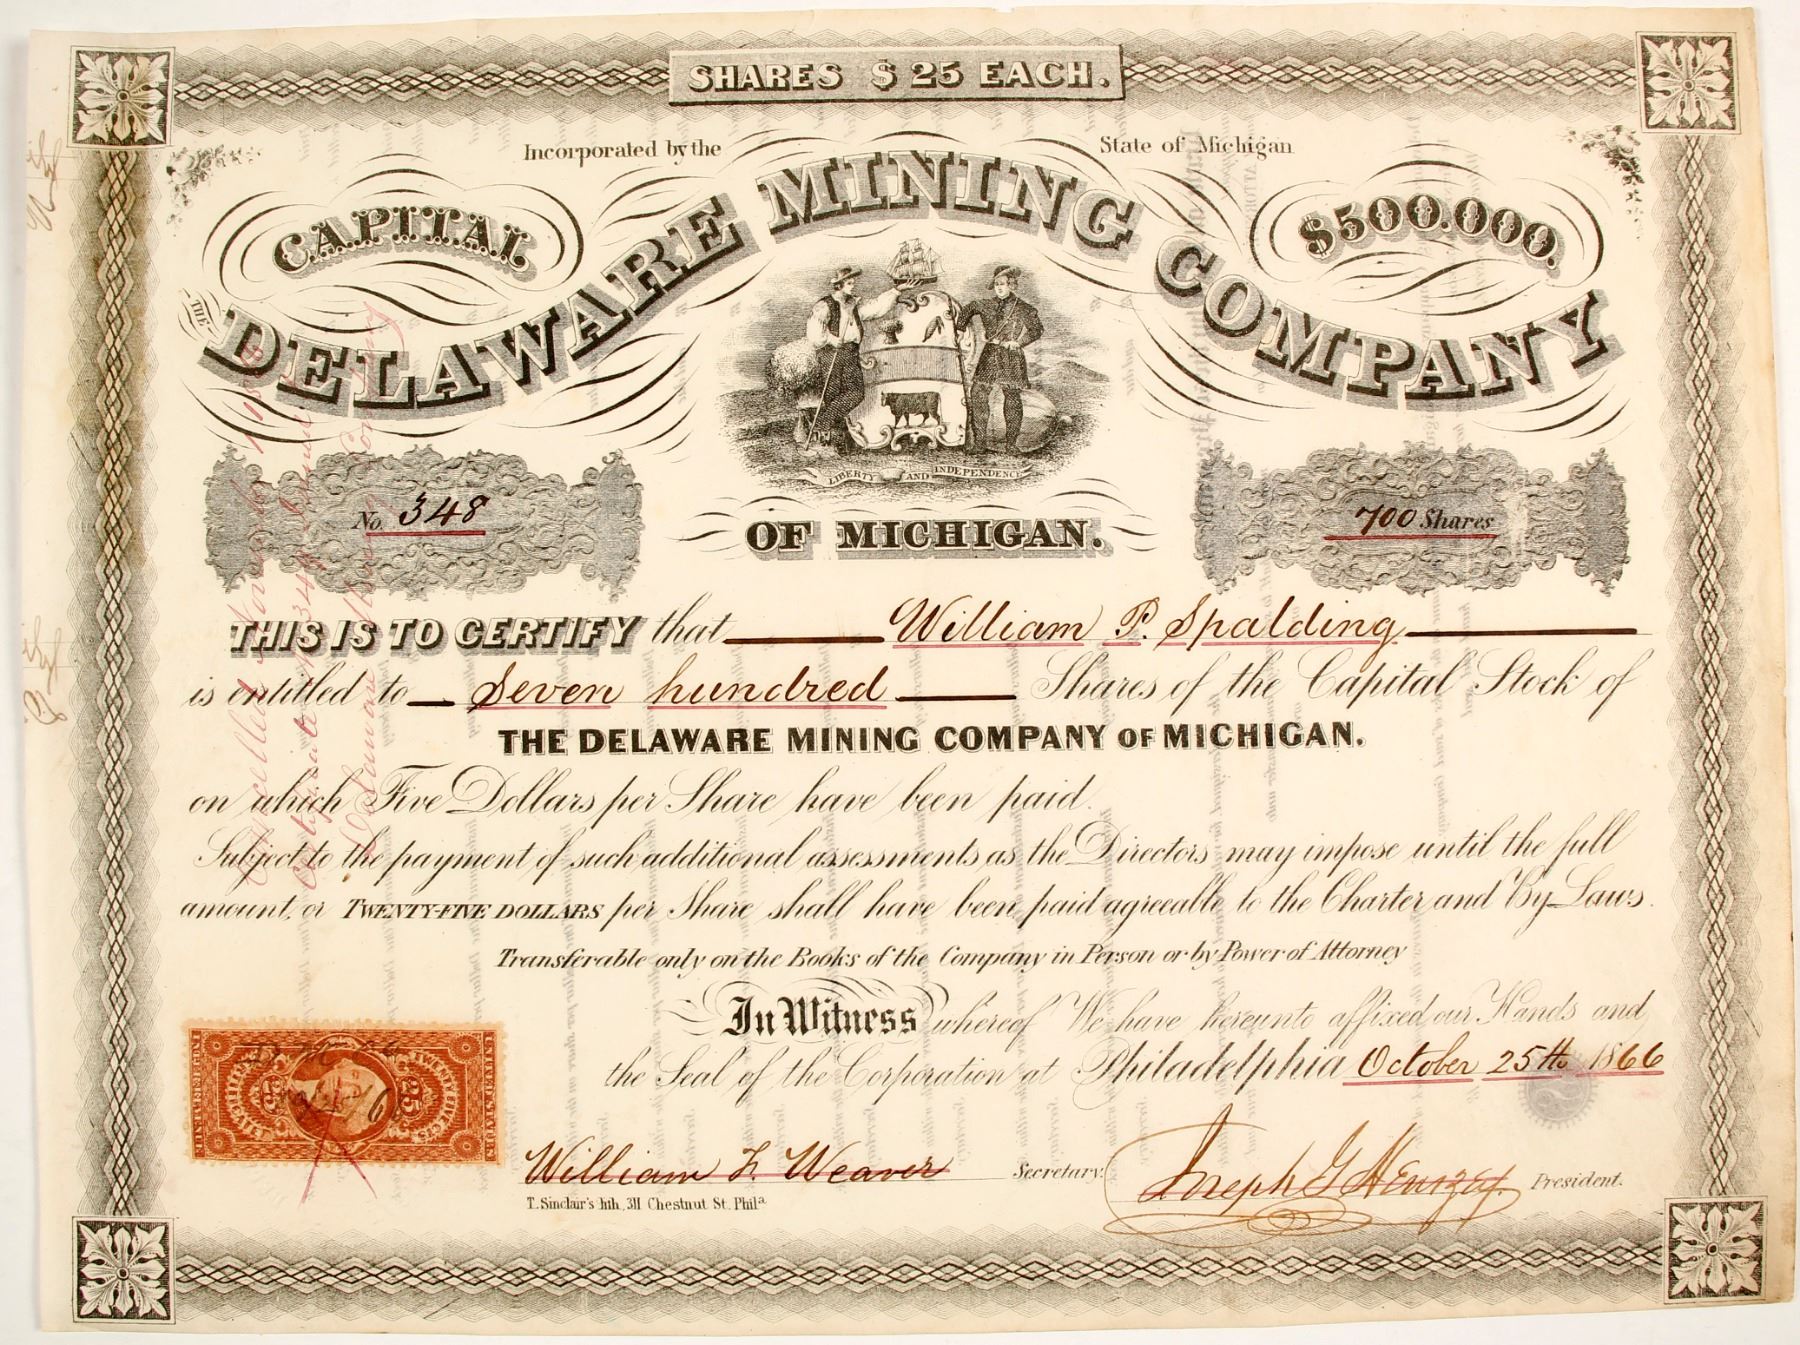 SHARES $ 25 EACH.
Incorporated by the State of Michigan
CAPITAL $500.000.
THE DELAWARE MINING COMPANY
LIBERTY AND INDEPENDENCE
No. 348
OF MICHIGAN.
700 Shares
THIS IS TO CERTIFY that William P. Spalding
is entitled to Seven hundred Shares of the Capital Stock of
THE DELAWARE MINING COMPANY OF MICHIGAN.
on which Five Dollars per Share have been paid.
Subject to the payment of such additional assessments as the Directors may impose until the full
amount, or TWENTY-FIVE DOLLARS per Share shall have been paid agreeable to the Charter and By-Laws.
Transferable only on the Books of the Company in Person or by Power of Attorney
In Witness whereof We have hereunto affixed our Hands and
the Seal of the Corporation at Philadelphia October 25th 1866
William F. Weaver Secretary.
Joseph G. Henszey. President.
T. Sinclair's lith, 311 Chestnut St. Phila
Cancelled
Certificate
Delaware
U.INTER.REV.
TWENTY FIVE CTS.
25